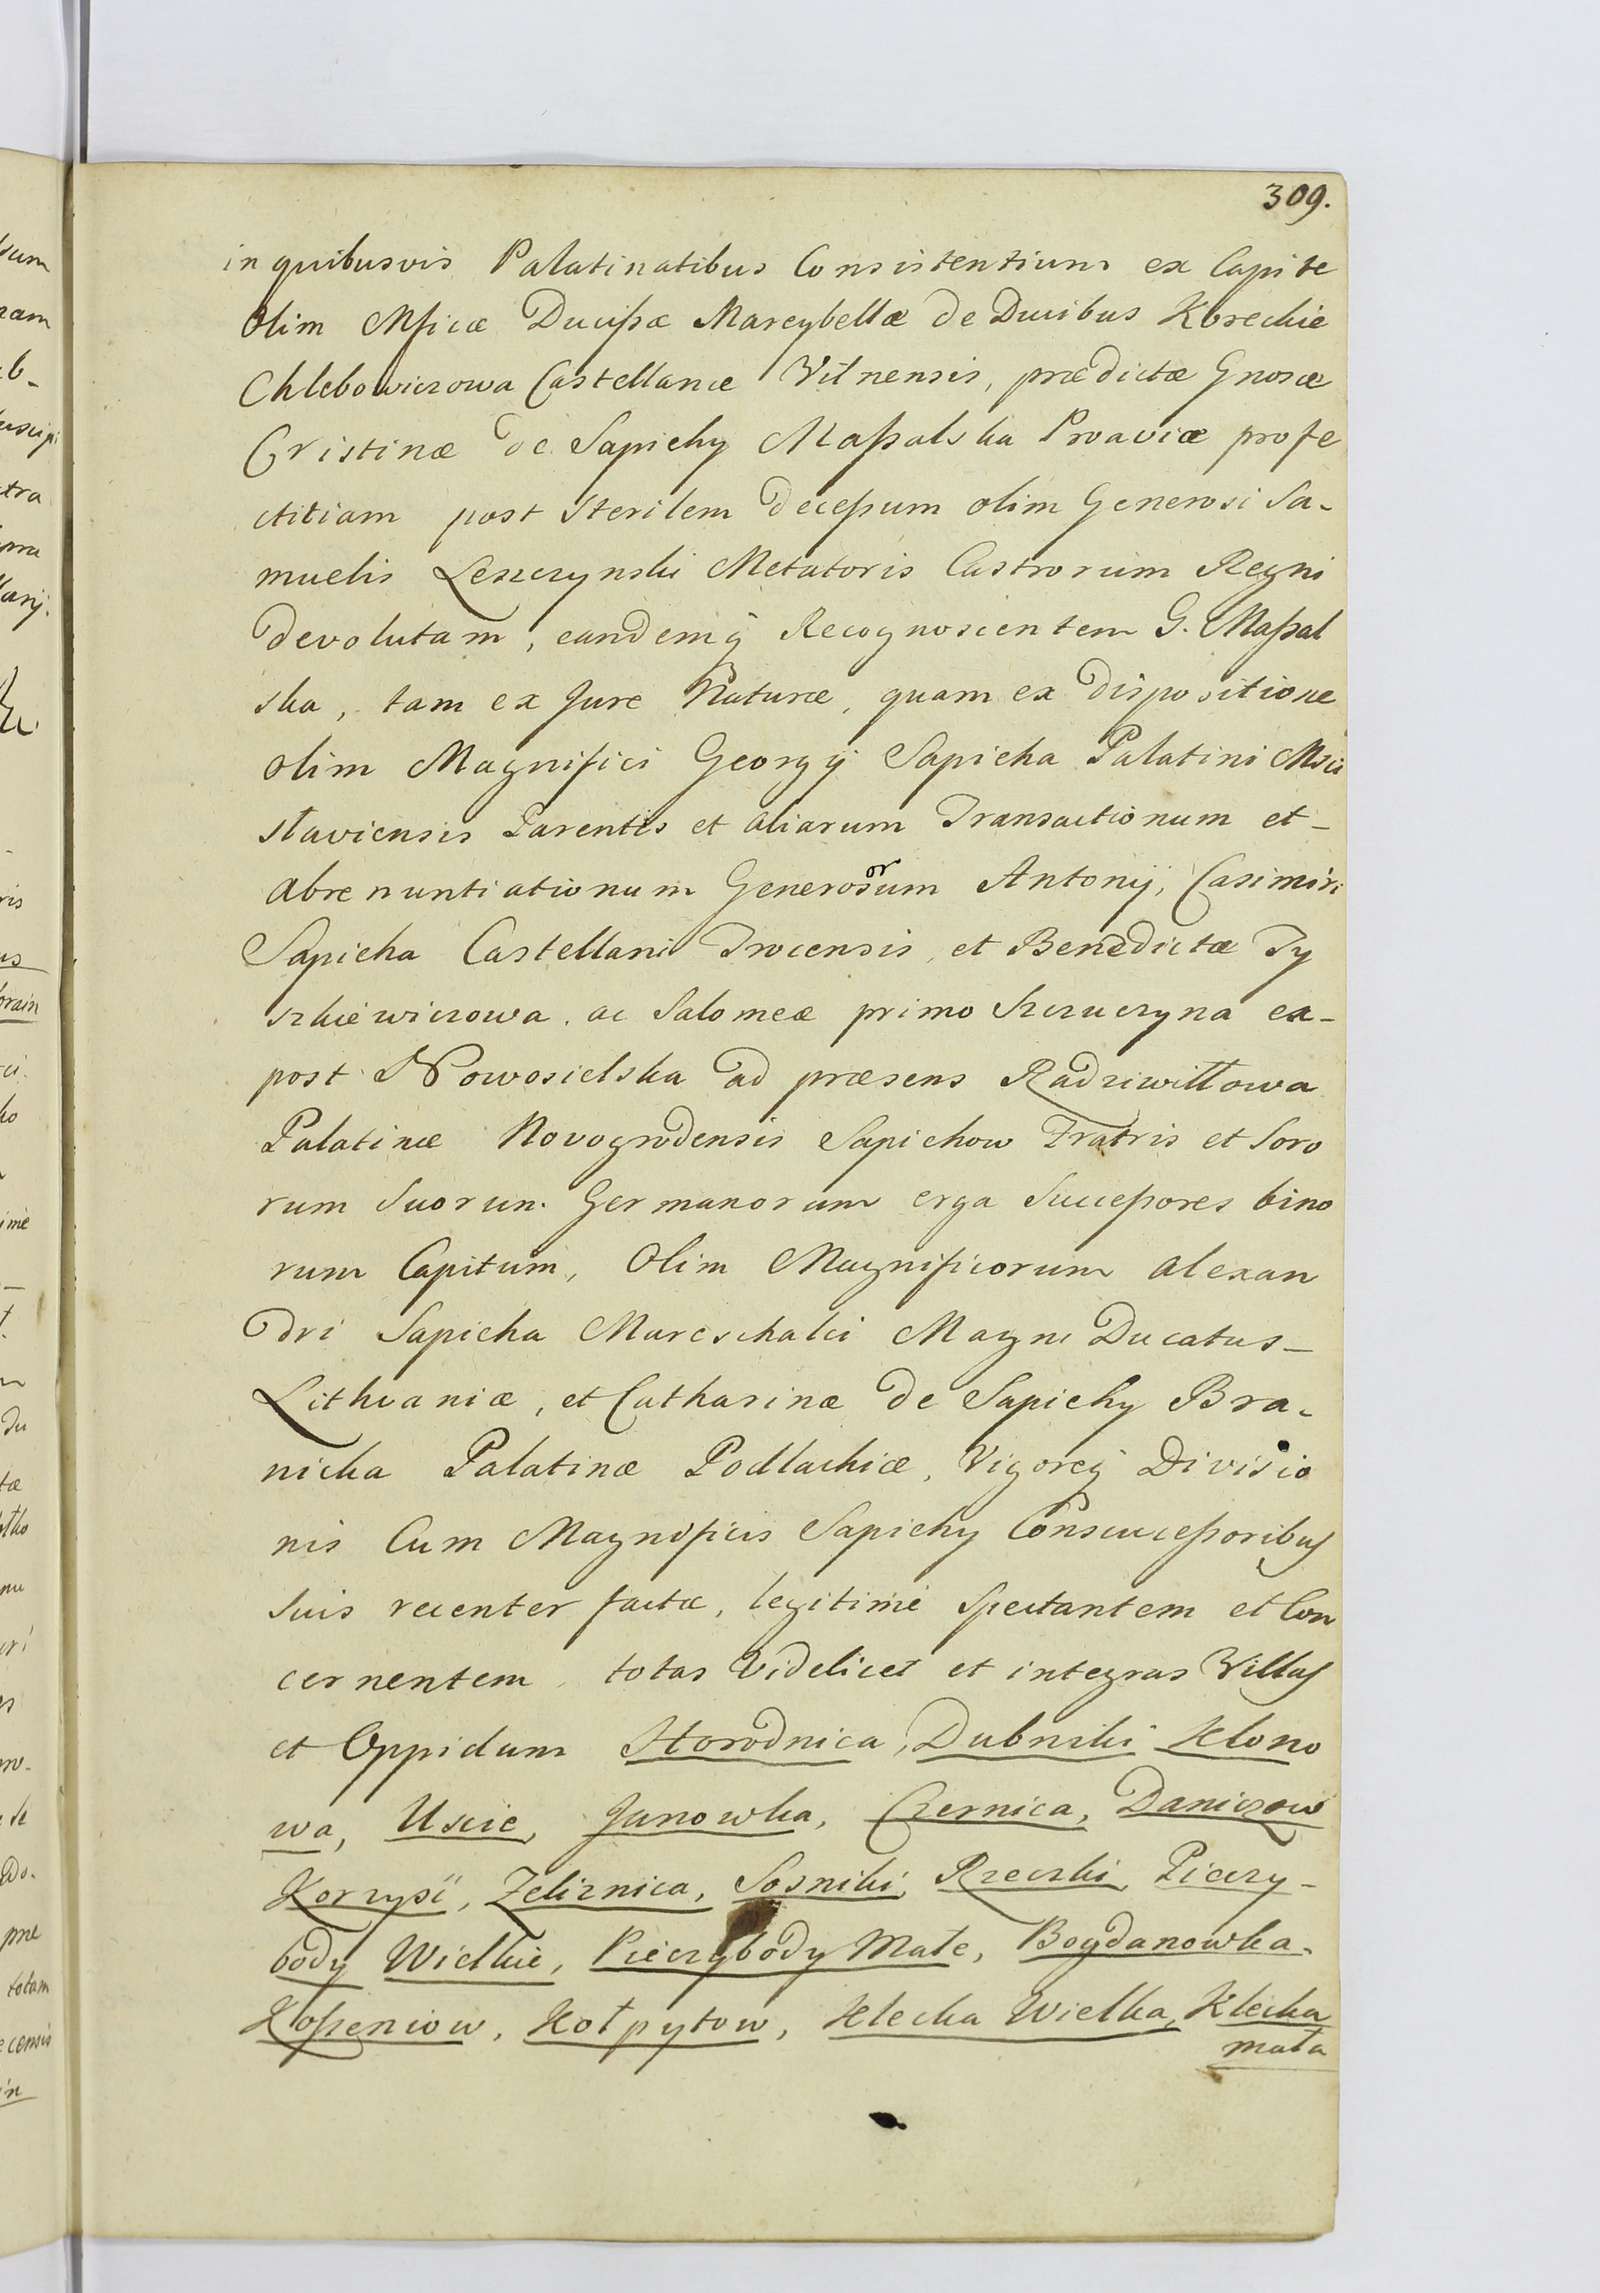 309.
in quibusvis Palatinatibus Consistentium ex Capite
Olim Mficæ Ducißæ Marcybellæ de Ducibus Koreckie
Chlebowiczowa Castellanæ Vilnensis, prædictæ Gnosæ
Cristinæ de Sapiehy Maßalska Proaviæ profe
ctitiam post sterilem deceßum olim Generosi Sa-
muelis Leszczynski Metatoris Castrorum Regni
devolutam, eandemq̃ Recognoscentem G. Maßal
ska, tam ex Jure Naturæ, quam ex dispositione
olim Magnifici Georgij Sapieha Palatini Mści
slaviensis Parentis et aliarum Transactionum et-
abrenuntiationum Generosorum Antonij, Casimiri
Sapieha Castellani Trocensis, et Benedictæ Ty
szkiewiczowa, ac Salomeæ primo Szczuczyna ex-
post Nowosielska ad præsens Radziwiłłowa
Palatinæ Novogrodensis Sapiehow Fratris et Soro
rum Suorum Germanorum erga Succeßores bino
rum Capitum, Olim Magnificorum Alexan
dri Sapieha Mareschalci Magni Ducatus-
Lithvaniæ, et Catharinæ de Sapiehy Bra-
nicka Palatinæ Podlachiæ, Vigoreq̃ Divisio
nis Cum Magnificis Sapiehy Consucceßoribus
suis recenter factæ, legitimè Spectantem et Con
cernentem, totas Videlicet et integras Villas
et Oppidum Horodnica, Dubniki Klono
wa, Uscie, Janowka, Czernica, Daniczow
Korzysć, Zeliznica, Sosniki, Rzeczki, Pieczy-
body Wielkie, Pieczybody Małe, Bogdanowka-
Koßeniow, Kołpytow, Klecka Wielka, Klecka
mała